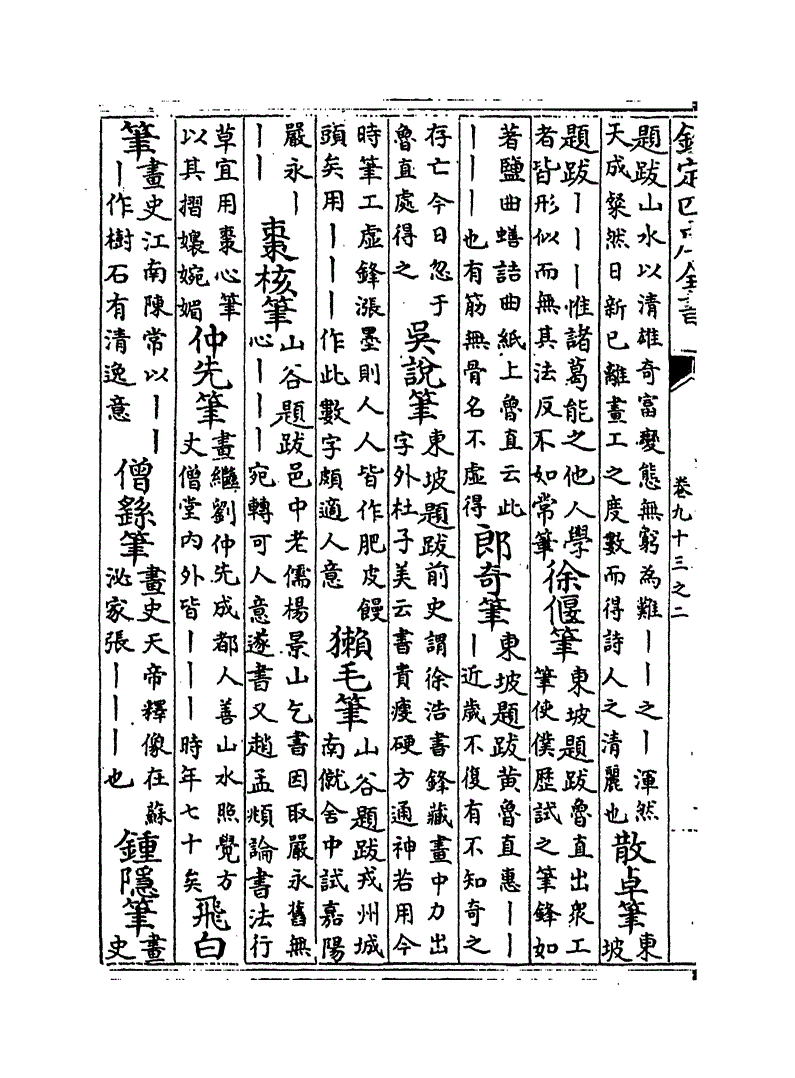 欽定四庫全書
卷九十三之二
題跋山水以清雄奇富變態無窮為難｜｜之｜渾然
天成粲然日新已離畫工之度數而得詩人之清麗也
散卓筆
東
坡
題跋｜｜｜惟諸葛能之他人學
者皆形似而無其法反不如常筆
徐偃筆
東坡題跋魯直出衆工
筆使僕歴試之筆鋒如
著鹽曲蟮詰曲紙上魯直云此
｜｜｜也有筋無骨名不虛得
郎奇筆
東坡題跋黄魯直惠｜｜
｜近歲不復有不知奇之
存亡今日忽于
魯直處得之
吳說筆
東坡題跋前史謂徐浩書鋒藏畫中力出
字外杜子美云書貴瘦硬方通神若用今
時筆工虛鋒漲墨則人人皆作肥皮饅
頭矣用｜｜｜作此數字頗適人意
獺毛筆
山谷題跋戎州城
南僦舍中試嘉陽
嚴永｜
｜｜
棗核筆
山谷題跋邑中老儒楊景山乞書因取嚴永舊無
心｜｜｜宛轉可人意遂書又趙孟頫論書法行
草宜用棗心筆
以其摺孃婉媚
仲先筆
畫繼劉仲先成都人善山水照覺方
丈僧堂内外皆｜｜｜時年七十矣
飛白
筆
畫史江南陳常以｜｜
｜作樹石有清逸意
僧繇筆
畫史天帝釋像在蘇
泌家張｜｜｜也
鍾隱筆
畫
史